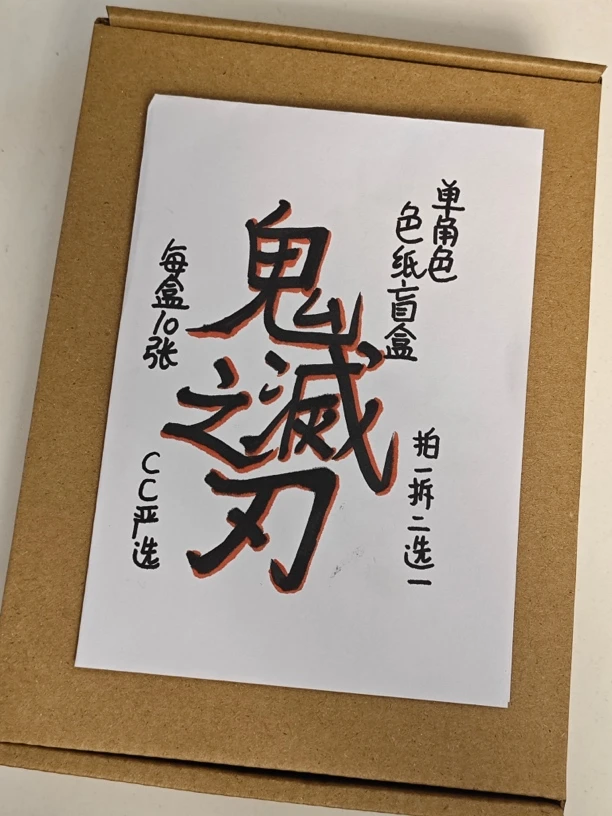 单角色
色纸盲盒
鬼滅之刃
每盒10张
拍一拆二选一
CC严选